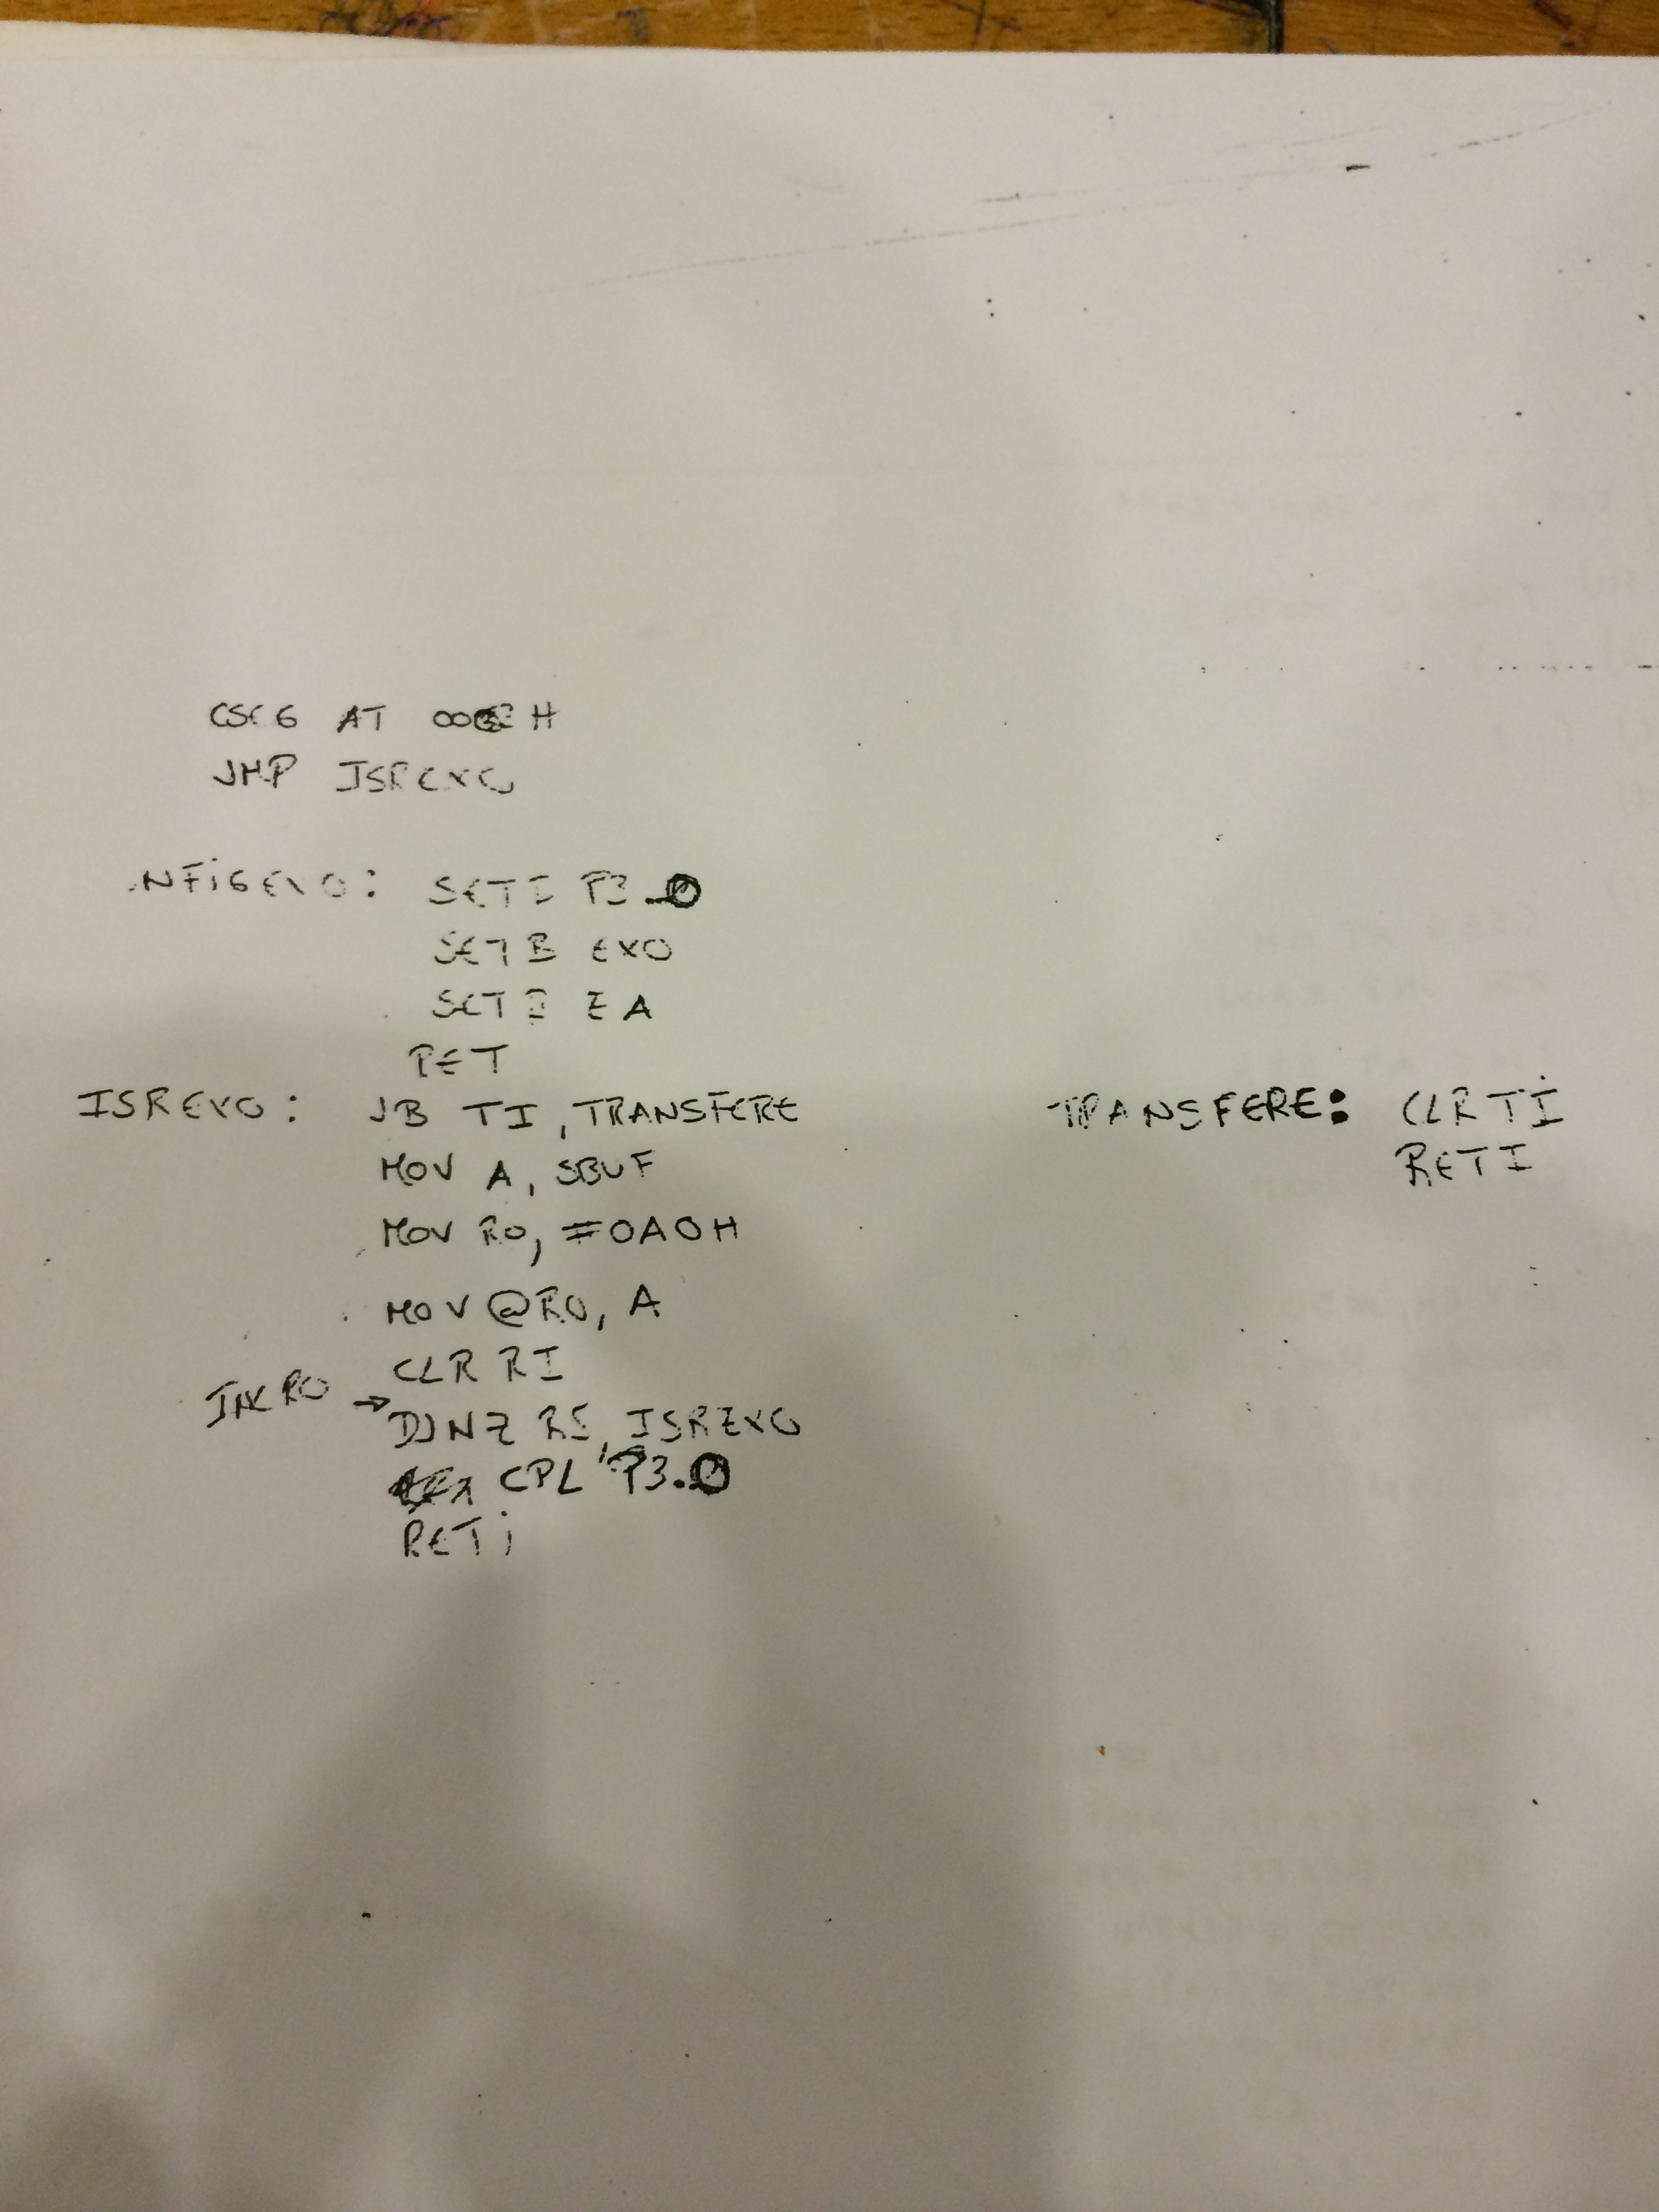 CSEG AT 0003H
JMP ISREX0
NFIGEX0: SETB P3.0
SETB EX0
SETB EA
RET
ISREX0: JB TI, TRANSFERE
MOV A, SBUF
MOV R0, #0A0H
MOV @R0, A
CLR RI
INC R0 →
DJNZ R5, ISREX0
CPL P3.0
RETi
TRANSFERE: CLR TI
RETI